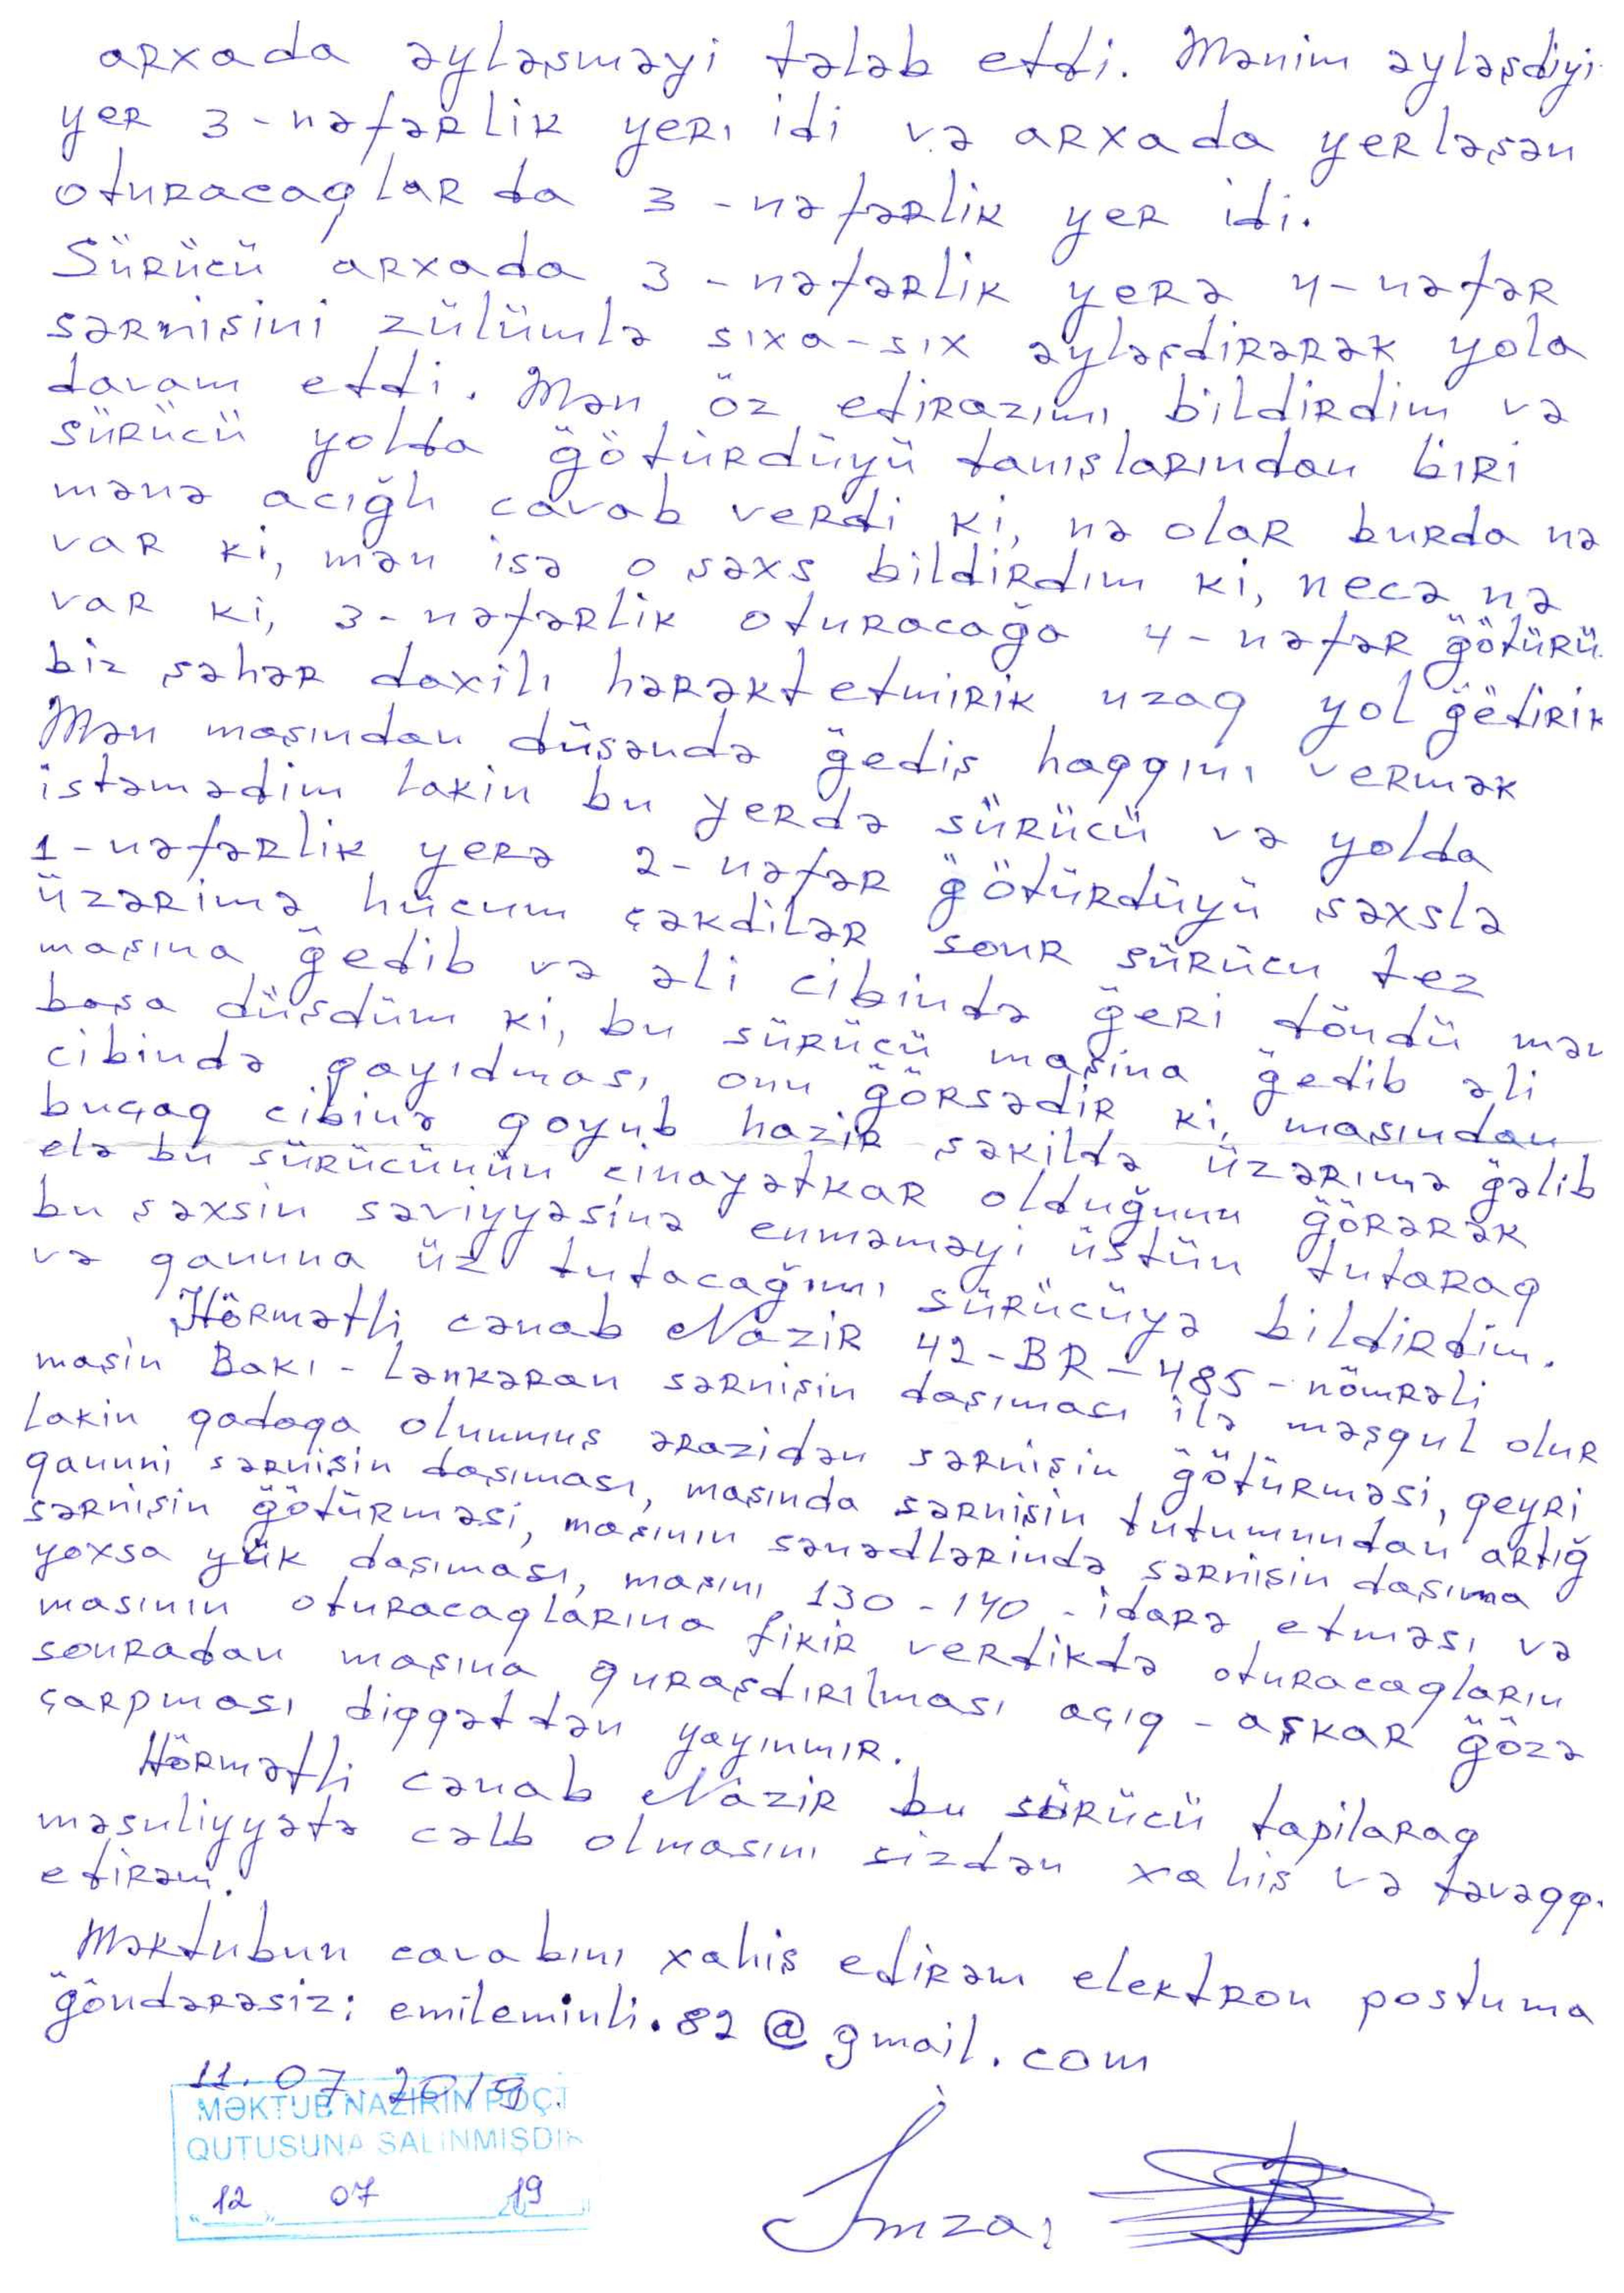 arxada əyləşməyi tələb etdi. Mənim əyləşdiyi
yer 3-nəfərlik yerı idi və arxada yerləşən
oturacaqlar da 3-nəfərlik yer idi.
Sürücü arxada 3-nəfərlik yerə 4-nəfər
sərnişini zülümlə sıxa-sıx əyləşdirərək yola
davam etdi. Mən öz etirazımı bildirdim və
sürücü yolda ğötürdüyü tanışlarından biri
mənə acığlı cavab verdi ki, nə olar burda nə
var ki, mən isə o şəxs bildirdim ki, necə nə
var ki, 3-nəfərlik oturacağa 4-nəfər ğötürü
biz şəhər daxili hərəkt etmirik uzaq yol ğetirik
Mən maşından düşəndə ğediş haqqını vermək
istəmədim lakin bu yerdə sürücü və yolda
1-nəfərlik yerə 2-nəfər ğötürdüyü şəxslə
üzərimə hücum çəkdilər sonr sürücü tez
maşına ğedib və əli cibində ğeri döndü mən
başa düşdüm ki, bu sürücü maşina ğedib əli
cibində qayıdması onu ğörsədir ki, maşından
buçaq cibinə qoyub hazir şəkildə üzərımə ğəlib
elə bu sürücünün cinayətkar olduğunu ğörərək
bu şəxsin səviyyəsinə enməməyi üstün tutaraq
və qanuna üz tutacağımı sürücüyə bildirdim.
Hörmətli cənab Nazir 42-BR-485-nömrəli
maşin Bakı-Lənkəran sərnişin daşıması ilə məşqul olur
lakin qadaqa olunmuş ərazidən sərnişin ğötürməsi, qeyri
qanuni sərnişin daşıması, maşında sərnişin tutumundan artığ
sərnişin ğötürməsi, maşının sənədlərində sərnişin daşıma
yoxsa yük daşıması, maşını 130-140-idarə etməsi və
maşının oturacaqlarına fikir verdikdə oturacaqların
sonradan maşına quraşdırılması açıq-aşkar ğözə
çarpması diqqətdən yayınmır.
Hörmətli cənab Nazir bu sürücü tapilaraq
məsuliyyətə cəlb olmasını sizdən xahiş və təvəqq
edirəm.
Məktubun cavabını xahiş edirəm elektron postuma
ğöndərəsiz: emileminli.82@gmail.com
11.07.2019.
MƏKTUB NAZİRİN POÇT
QUTUSUNA SALINMIŞDIR
"12" 07 19
İmza: